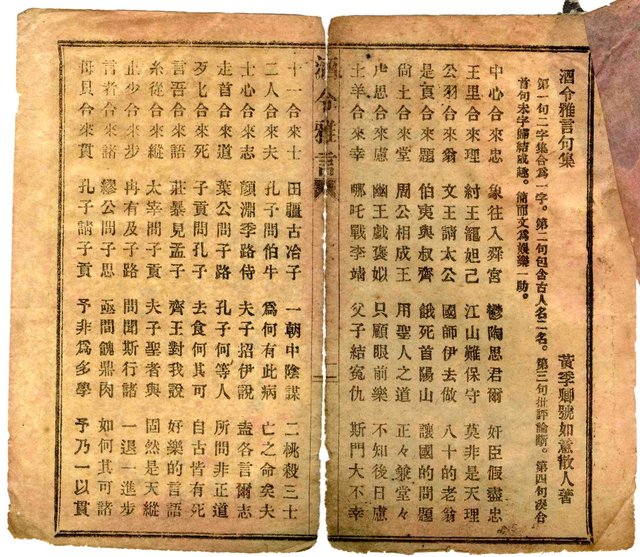 酒令雅言句集　黃季卿號如意散人著
第一句二字集合爲一字。第二句包含古人名二名。第三句批評論斷。第四句湊合
首句末字歸結成趣。簡而文爲娛樂一助。
中心合來忠　象往入舜宮　鬱陶思君爾　奸臣假盡忠
王里合來理　紂王寵妲己　江山難保守　莫非是天理
公羽合來翁　文王請太公　國師伊去做　八十的老翁
是頁合來題　伯夷與叔齊　餓死首陽山　讓國的問題
尙土合來堂　周公相成王　用聖人之道　正々兼堂々
虍思合來慮　幽王戲褒姒　只顧眼前樂　不知後日慮
土羊合來幸　哪吒戰李靖　父子結冤仇　斯門大不幸
酒令雅言　一
十一合來士　田疆古冶子　一朝中陰謀　二桃殺三士
二人合來夫　孔子問伯牛　爲何有此病　亡之命矣夫
士心合來志　顏淵季路侍　夫子招伊說　盍各言爾志
走首合來道　葉公問子路　孔子何等人　所問非正道
歹匕合來死　子貢問孔子　去食何其可　自古皆有死
言吾合來語　莊暴見孟子　齊王對我說　好樂的言語
糸從合來縱　太宰問子貢　夫子聖者與　固然是天縱
止少合來步　冉有及子路　問聞斯行諸　一退一進步
言者合來諸　繆公問子思　亟問餽鼎肉　如何其可諸
毋貝合來貫　孔子請子貢　予非爲多學　予乃一以貫